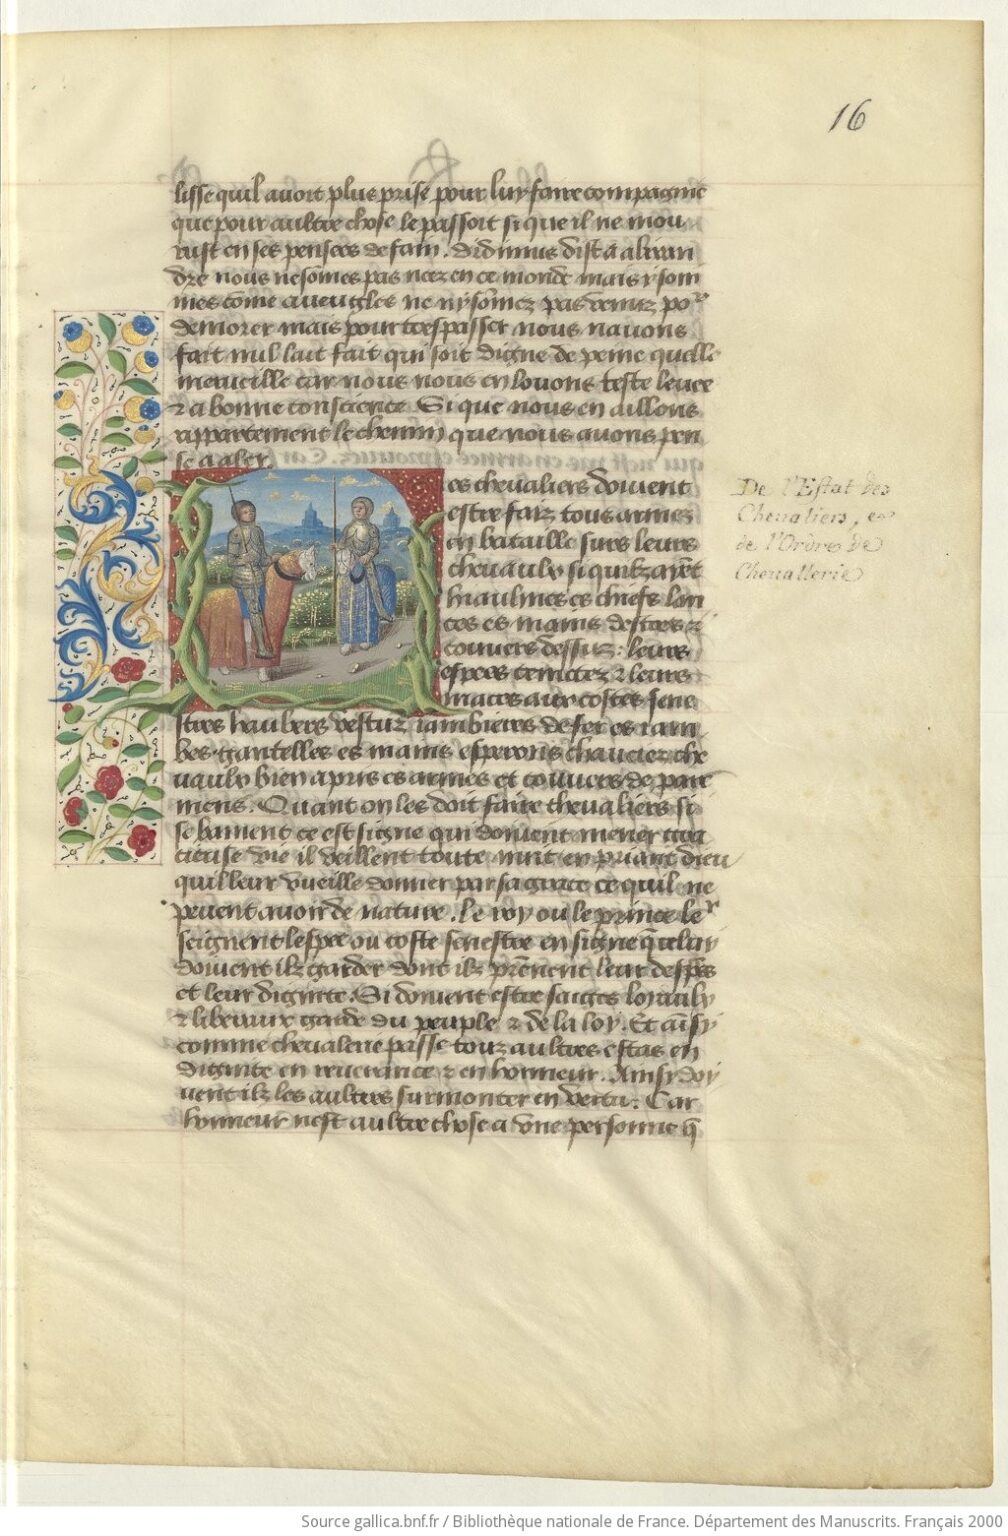 16
lisse quil avoit plus prise pour luy faire compagnie
que pour aultre chose le passoit si que il ne mou
rust en ses pensees de fain. Didimus dist a alixan
dre nous nesomes pas nez en ce monde mais y som
mes come aveugles ne ny somez pas venuz por
demorer mais pour trespasser nous navons
fait nul lait fait qui soit digne de peine quelle
merveille car nous nous en louons teste levee
⁊ a bonne conscience. Si que nous en aillons
appartement le chemin que nous avons pen
se a aler.
es chevaliers doivent
estre faiz tous armez
en bataille surs leurs
chevaulx si quilz ayet
hiaulmes es chiefs lan
ces es mains destres ⁊
couvers dessuz: leurs
espees ceinctez ⁊ leurs
maces aux costes sene
stres haubers vestuz jambieres de fer es jam
bes. gantelles es mains esperons chauciez che
vaulx bien apris es armes et couvers de pare
mens. Quant on les doit faire chevaliers si
se baineut ce est signe qui doivent mener
vie il veillent toute nuit en priant dieu
quil leur vueille donner par sa grace ce quil ne
pevent avoir de nature. Le roy ou le prince ler
seignent lespee ou coste senestre en signe q̄ celuy
doivent ilz garder dont ilz prēnent leur despēs
et leur dignite. Si doivent estre saiges loyaulx
⁊ liberaux garde du peuple ⁊ de la loy. Et aīsi
comme chevalerie passe touz aultres estas en
dignite en reverance ⁊ en honneur. Ainsy doy
vent ilz les aultres surmonter en vertu. Car
honneur nest aultre chose a une personne q̄
De l'Estat des
Chevaliers, et
de l'Ordre de
Chevallerie
Source gallica.bnf.fr / Bibliothèque nationale de France. Département des Manuscrits. Français 2000